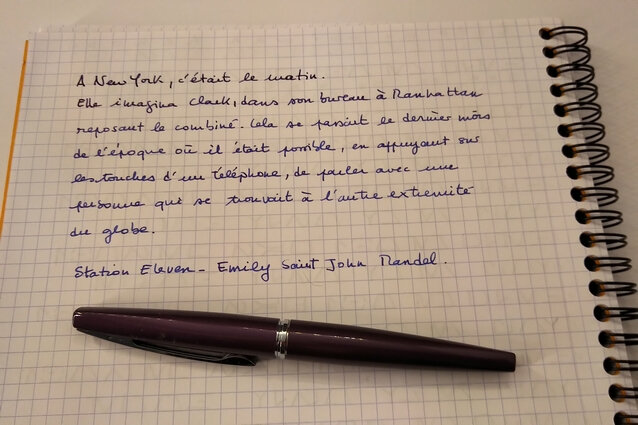 A New York, c'était le matin.
Elle imagina Clark, dans son bureau à Manhattan
reposant le combiné. Cela se passait le dernier mois
de l'époque où il était possible, en appuyant sur
les touches d'un téléphone, de parler avec une
personne qui se trouvait à l'autre extremité
du globe.
Station Eleven - Emily Saint John Mandel.